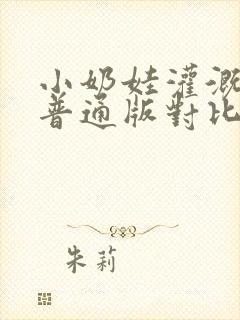 小奶娃灌溉
普通版對比
朱莉